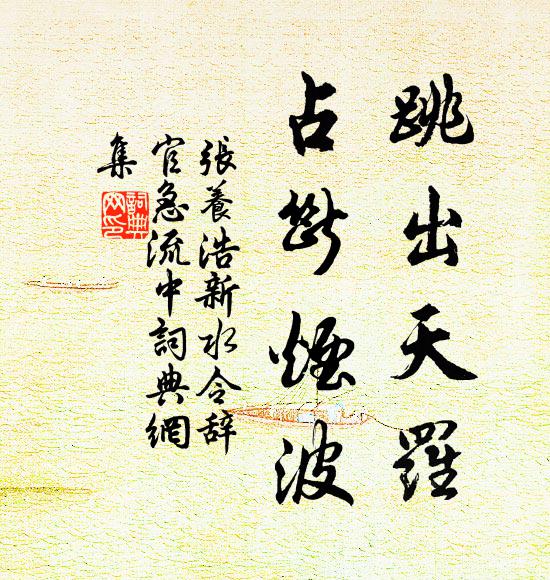 跳出天羅
占斷煙波
張養浩新水令辞
官急流中詞典網
集
詞典
网印